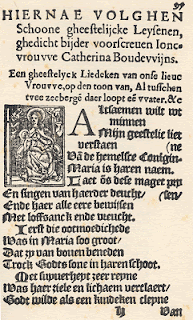 97
HIERNAE VOLGHEN
Schoone gheestelijcke Leysenen,
ghedicht bijder voorscreuen Ionc-
vrouvve Catherina Boudevvijns.
Een gheestelyck Liedeken van onse lieue
Vrouvve, op den toon van, Al tusschen
tvee zeebergē daer loopt eē vvater, &c
Alsaemen wilt wt
minnen
Mijn geestelic liet
verstaen
Vā de hemelsce Conigin-
Maria is haren naem.
Laet ōs dese maget prys
En singen van haerder deucht
Ende haer alle eere bewijsen
Met loffsanck ende veucht.
Eerst die ootmoedichede
Was in Maria soo groot
Dat zy van bouen beneden
Trock Godts sone in haren schoot.
Met suyuerheyt zeer reyne
Was haer ziele en lichaem verclaert
Godt wilde als een kindeken cleyne
Van